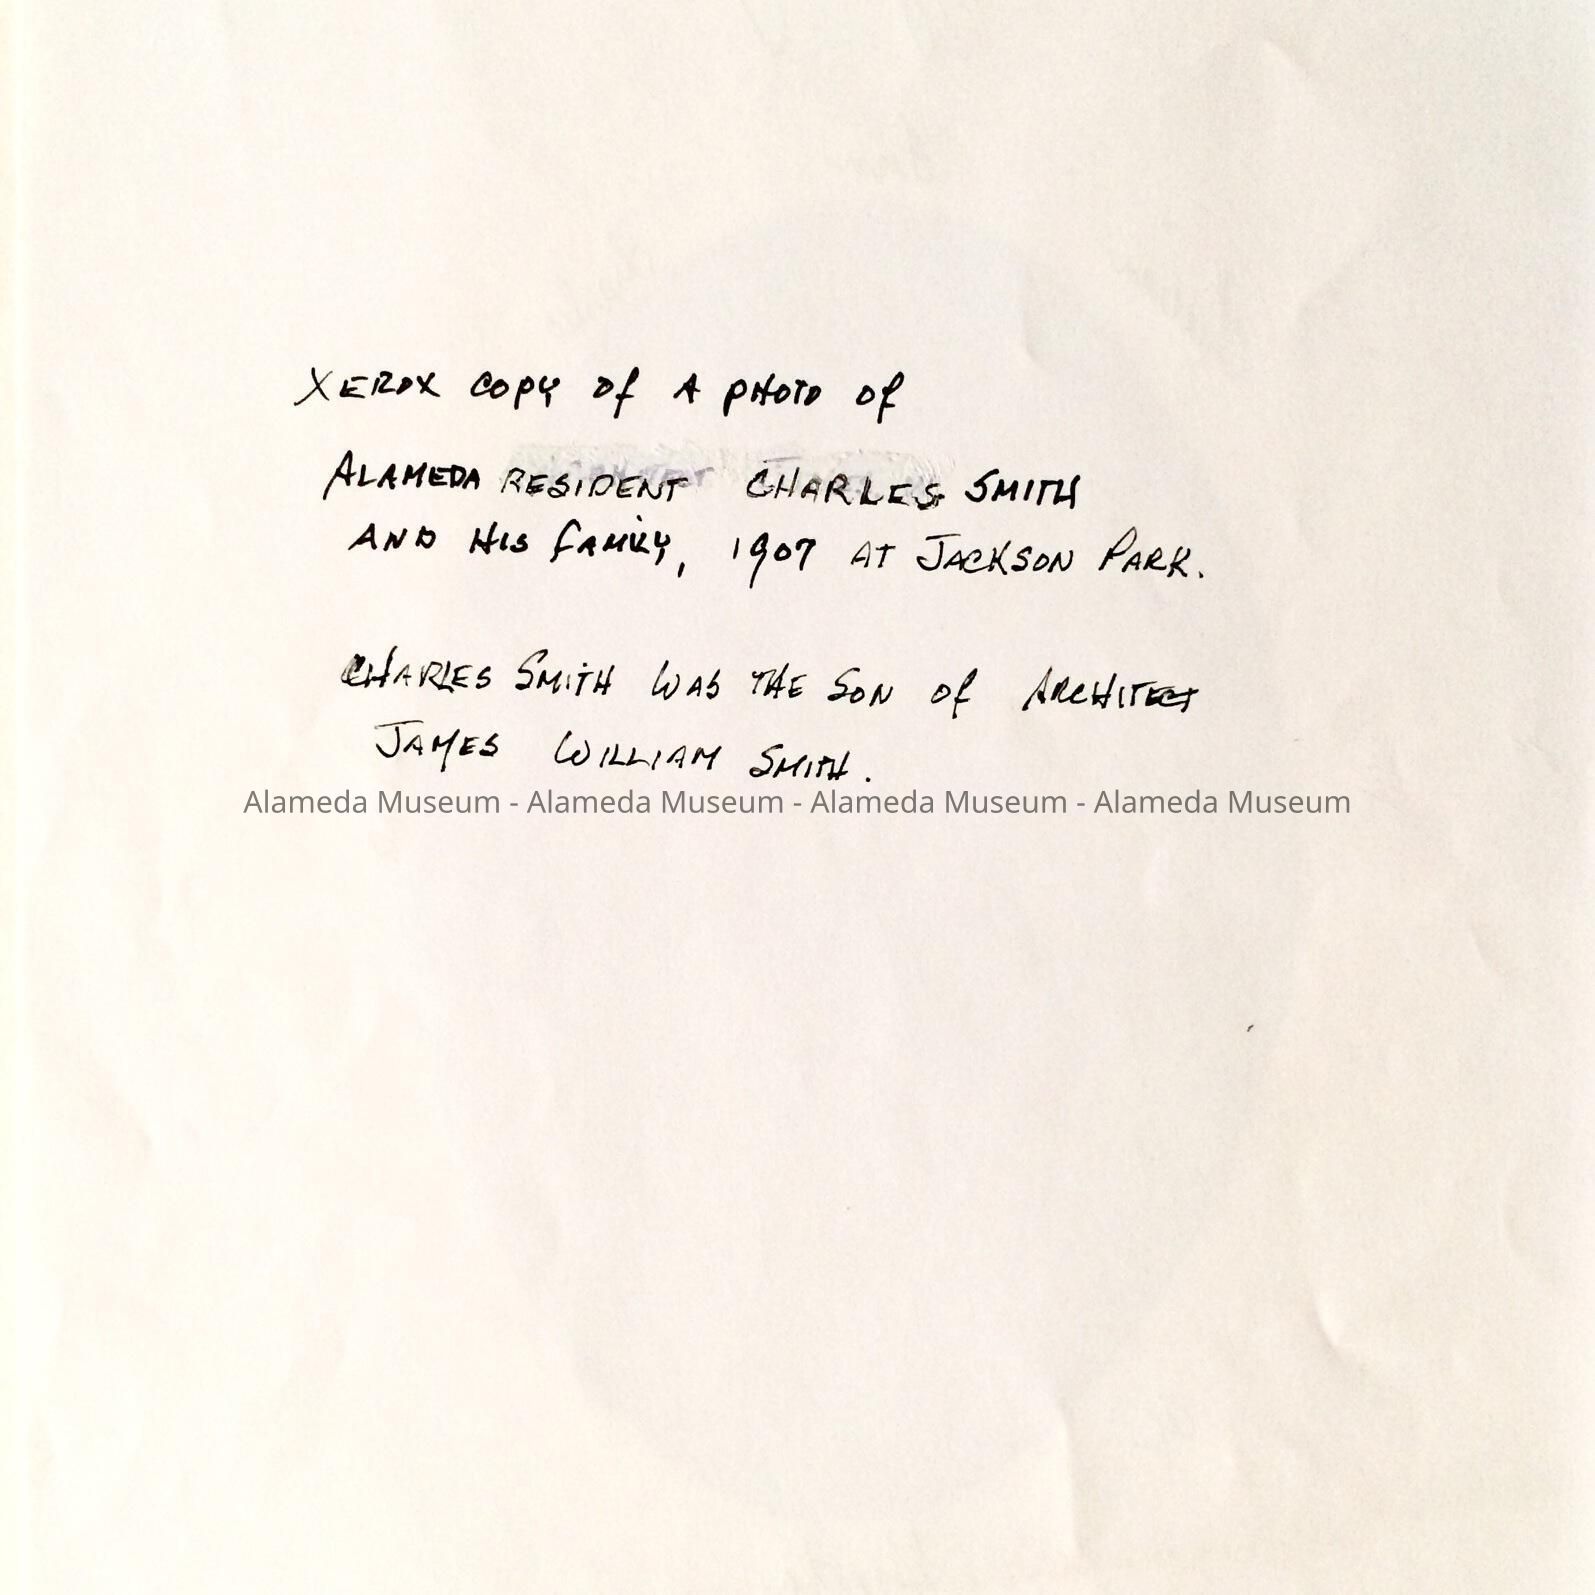 XEROX COPY Of A PHOTO Of
ALAMEDA RESIDENT CHARLES SMITH
AND HIS FAMILY, 1907 AT JACKSON PARK.
CHARLES SMITH WAS THE SON Of ARCHITECT
JAMES WILLIAM SMITH.
Alameda Museum - Alameda Museum - Alameda Museum - Alameda Museum